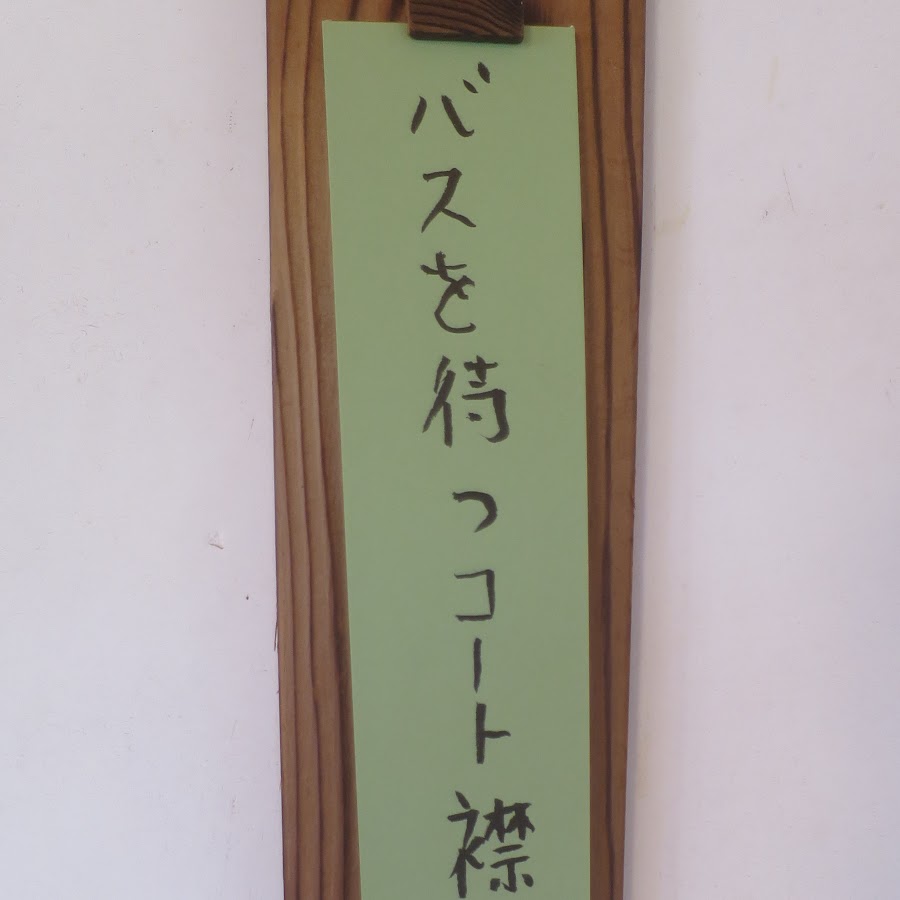 バスを待つコート襟